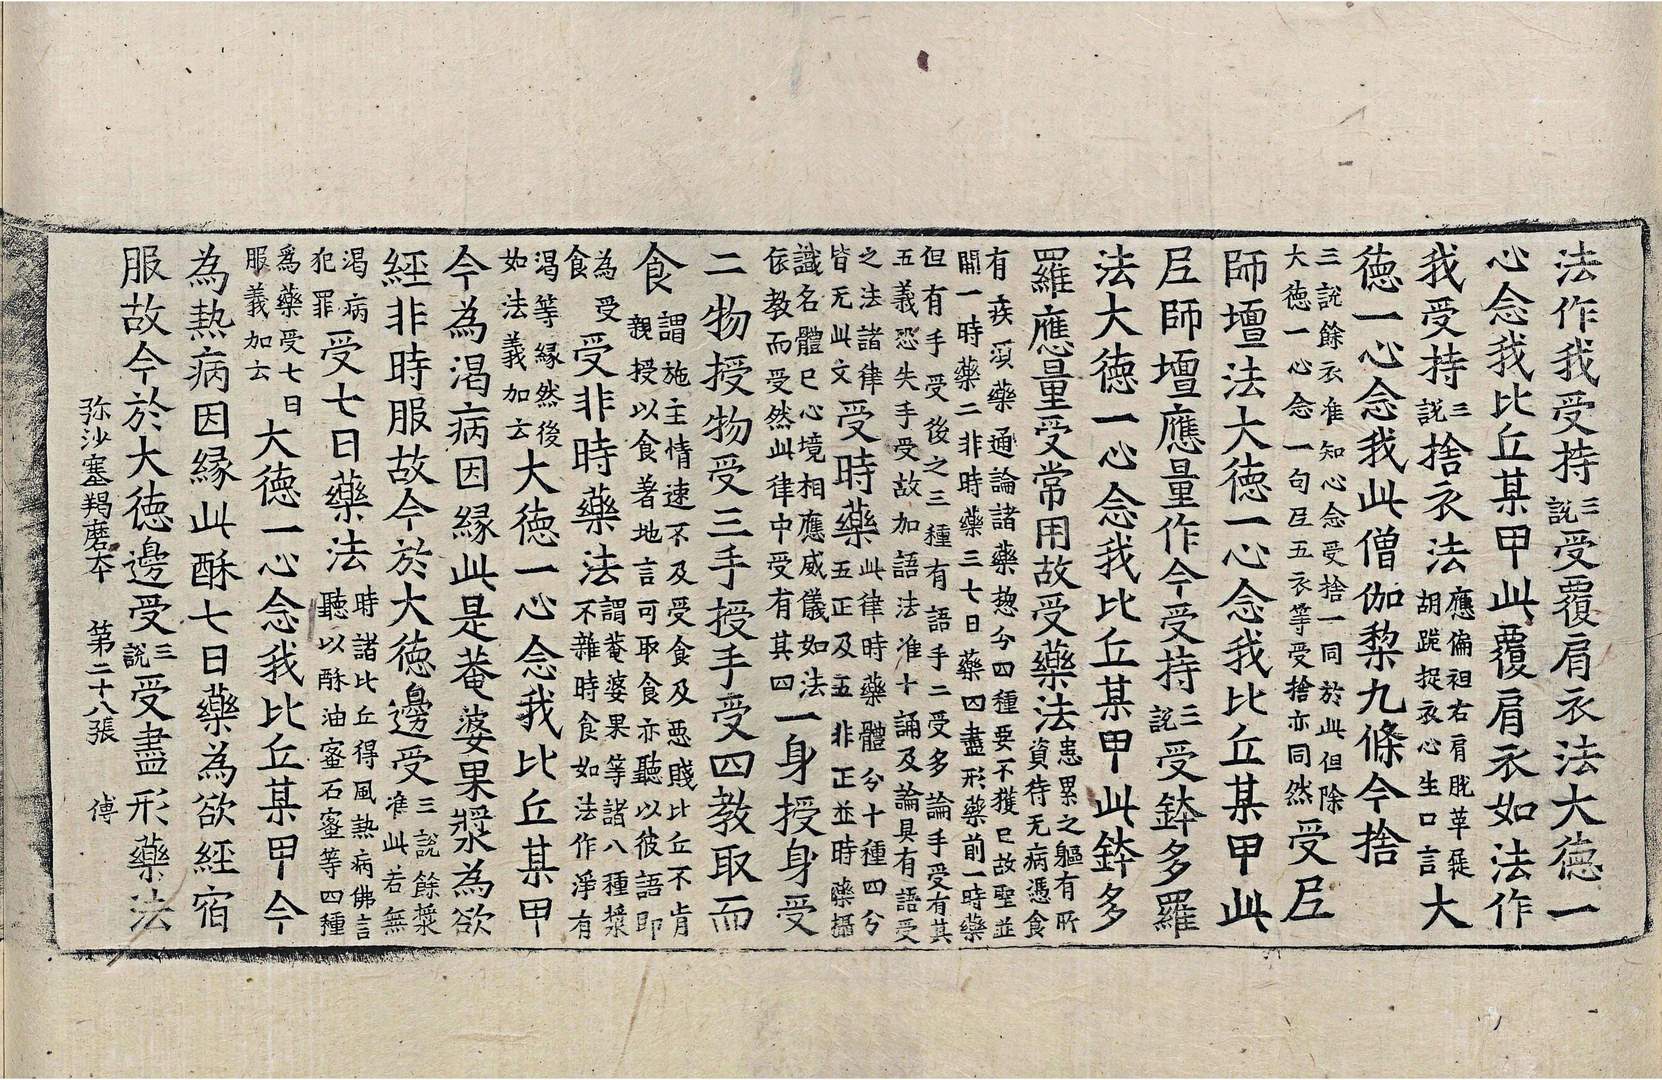 法作我受持三說受覆肩衣法大徳一
心念我比丘某甲此覆肩衣如法作
我受持三說捨衣法應徧袒右肩脫革屣胡跪捉衣心生口言大
徳一心念我比丘某甲此僧伽梨九條今捨
三說餘衣准知心念受捨一同於此但除大徳一心念一句𡰱五衣等受捨亦同然受𡰱
師壇法大徳一心念我比丘某甲此
𡰱師壇應量作今受持三說受鉢多羅
法大徳一心念我比丘某甲此鉢多
羅應量受常用故受藥法患累之軀有所資待无病憑食
有疾須藥通論諸藥揔分四種要不獲已故聖並開一時藥二非時藥三七日藥四盡形藥前一時藥
但有手受後之三種有語手二受多論手受有其五義恐失手受故加語法准十誦及論具有語受
之法諸律皆无此文受時藥此律時藥體分十種四分五正及五非正並時藥攝
識名體已心境相應威儀如法依教而受然此律中受有其四一身授身受
二物授物受三手授手受四教取而
食謂施主情速不及受食及惡賤比丘不肯親授以食著地言可取食亦聽以彼語即
為受食受非時藥法謂菴婆果等諸八種漿不雜時食如法作淨有
渴等緣然後如法義加云大徳一心念我比丘某甲
今為渴病因緣此是菴婆果漿為欲
經非時服故今於大徳邊受三說餘漿准此若無
渴病犯罪受七日藥法時諸比丘得風熱病佛言聽以酥油蜜石蜜等四種
為藥受七日服義加云大徳一心念我比丘某甲今
為熱病因緣此酥七日藥為欲經宿
服故今於大徳邊受三說受盡形藥法
弥沙塞羯磨夲　第二十八張　傅